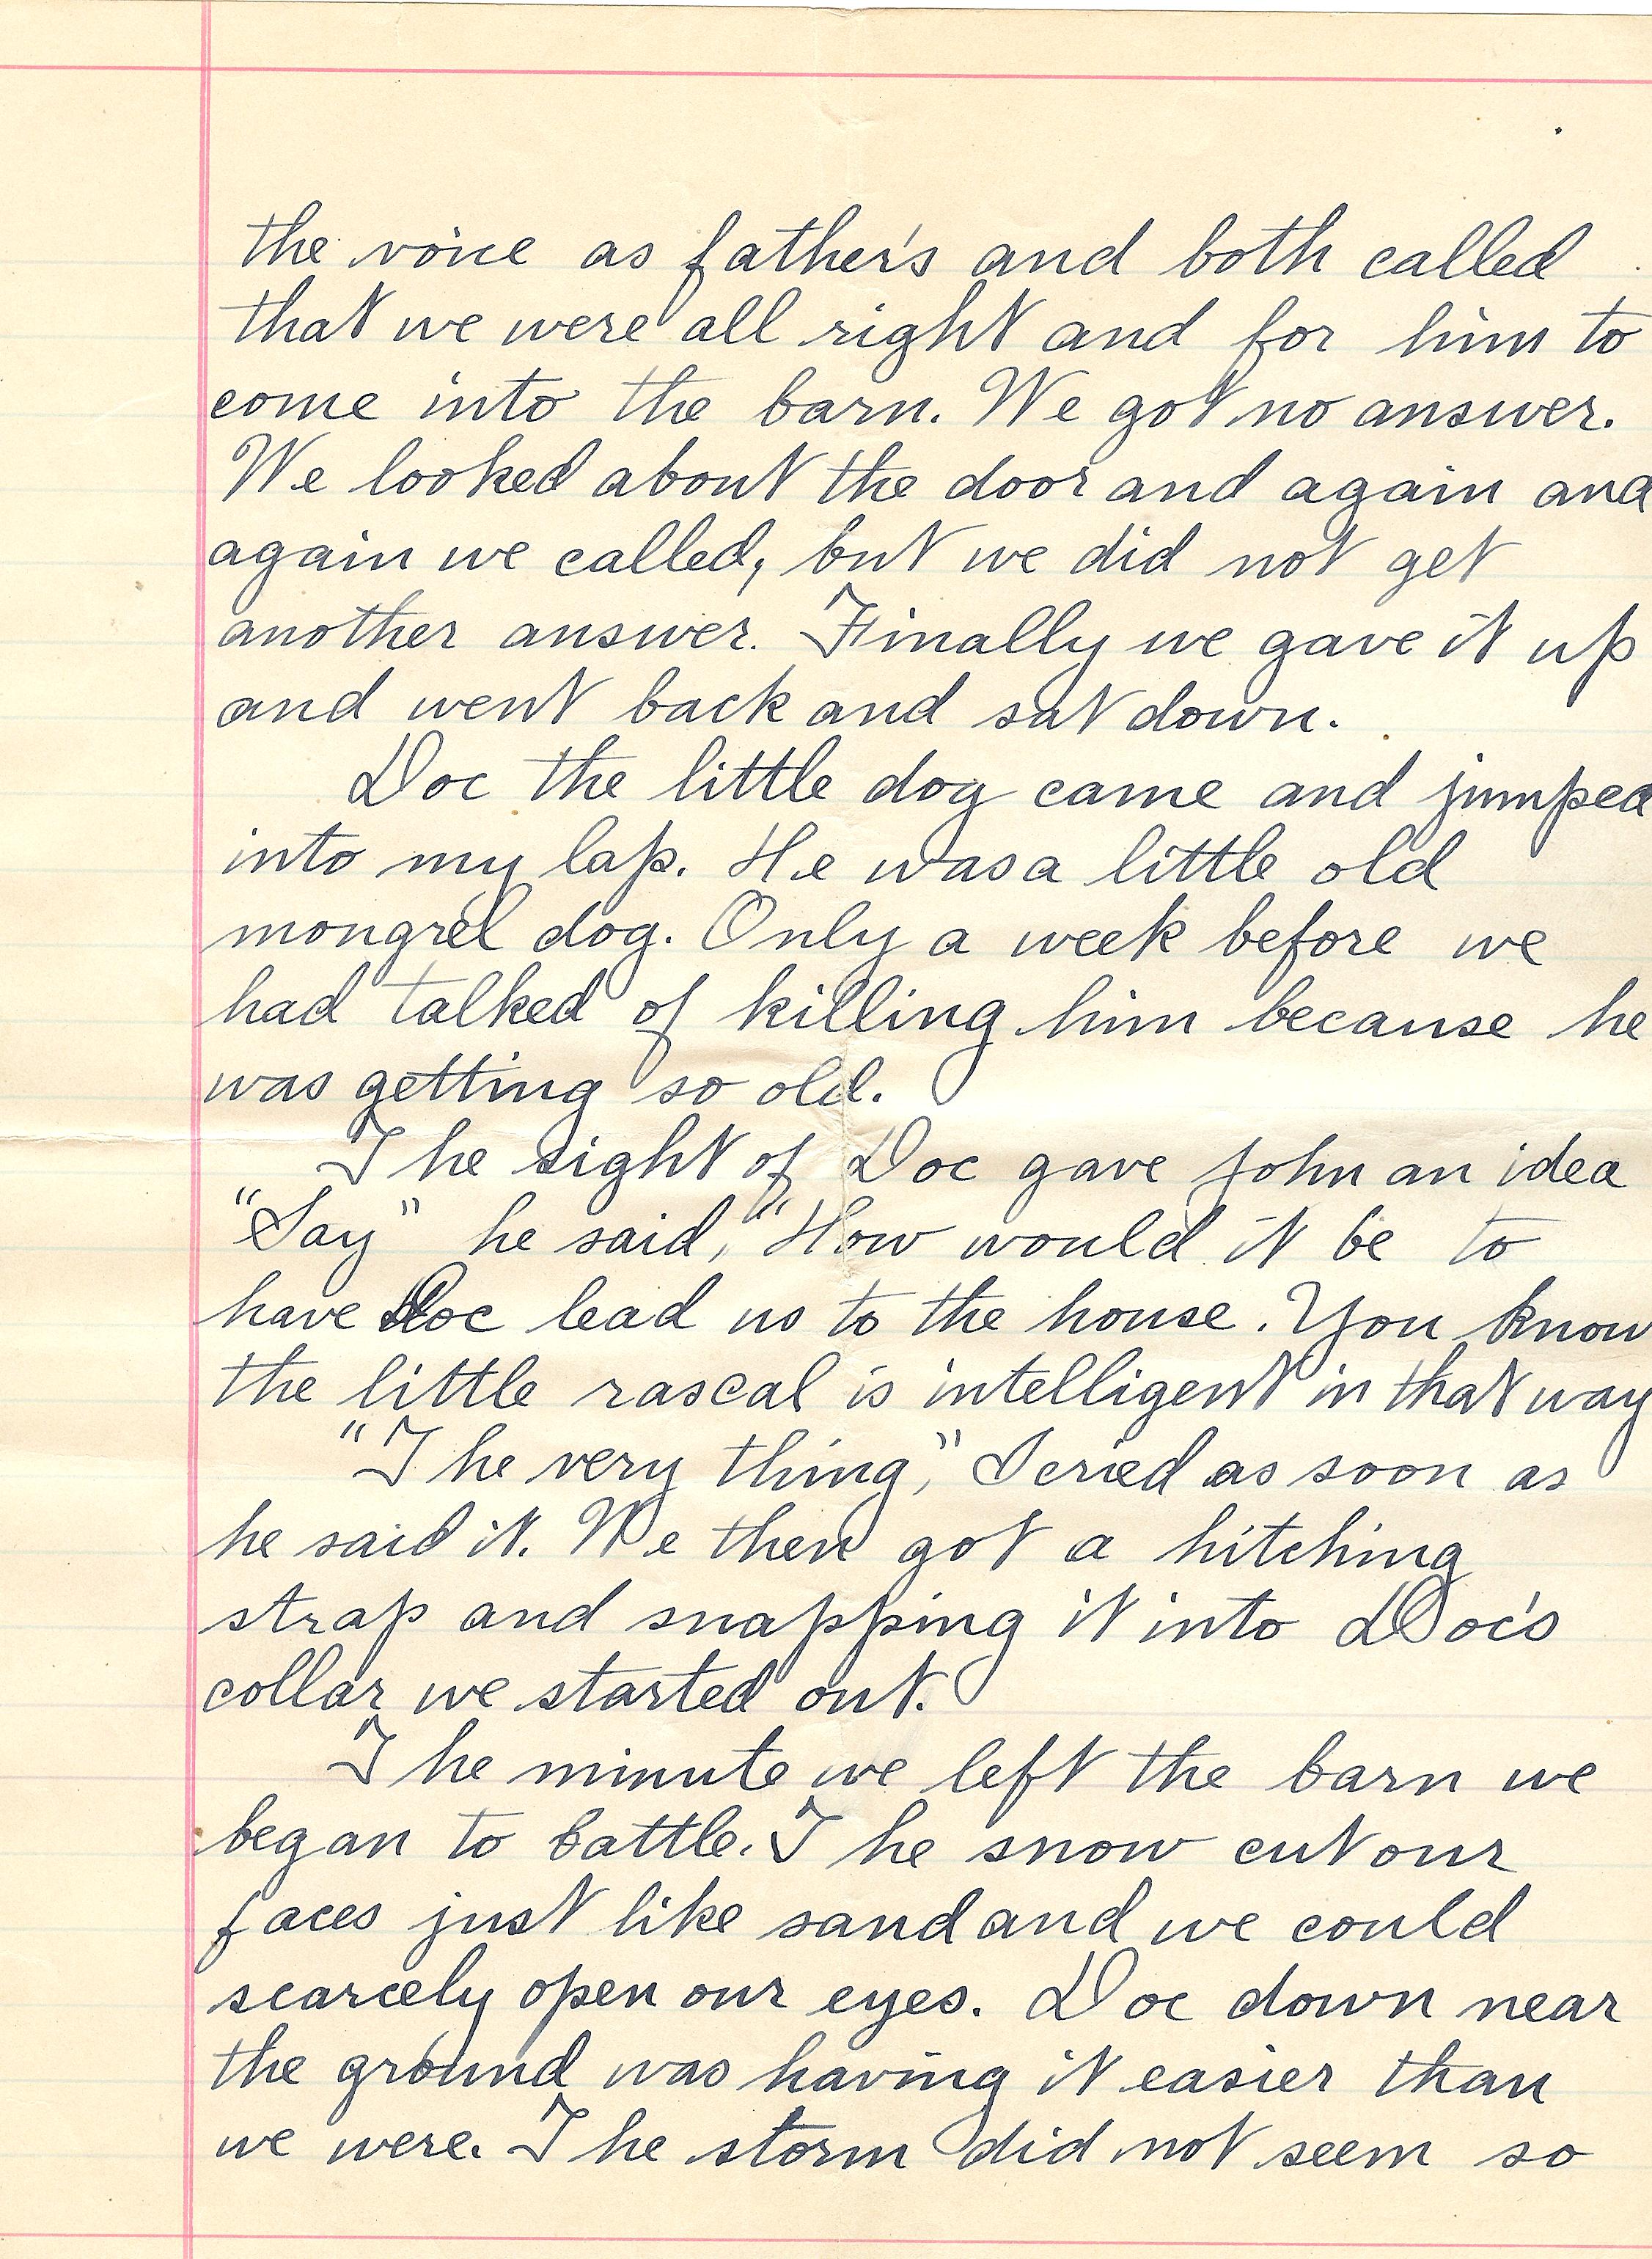 the voice as father's and both called
that we were all right and for him to
come into the barn. We got no answer.
We looked about the door and again and
again we called, but we did not get
another answer. Finally we gave it up
and went back and sat down.
Doc the little dog came and jumped
into my lap. He was a little old
mongrel dog. Only a week before we
had talked of killing him because he
was getting so old.
The sight of Doc gave John an idea
"Say" he said, "How would it be to
have Doc lead us to the house. You know
the little rascal is intelligent in that way
"The very thing," I cried as soon as
he said it. We then got a hitching
strap and snapping it into Doc's
collar we started out.
The minute we left the barn we
began to battle. The snow cut our
faces just like sand and we could
scarcely open our eyes. Doc down near
the ground was having it easier than
we were. The storm did not seem so